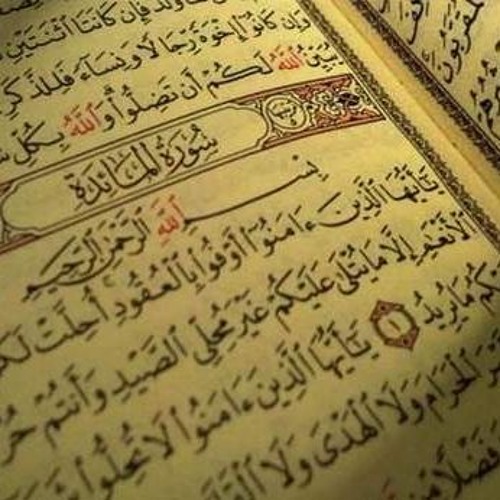 وَلَدٌ فَإِن كَانَتَا ٱثْنَتَيْنِ
وَإِن كَانُوٓا۟ إِخْوَةً رِّجَالًا وَنِسَآءً فَلِلذَّكَرِ
يُبَيِّنُ ٱللَّهُ لَكُمْ أَن تَضِلُّوا۟ وَٱللَّهُ بِكُلِّ
سُورَةُ المَائِدَةِ
بِسْمِ ٱللَّهِ ٱلرَّحْمَٰنِ ٱلرَّحِيمِ
يَٰٓأَيُّهَا ٱلَّذِينَ ءَامَنُوٓا۟ أَوْفُوا۟ بِٱلْعُقُودِ أُحِلَّتْ لَكُ
ٱلْأَنْعَٰمِ إِلَّا مَا يُتْلَىٰ عَلَيْكُمْ غَيْرَ مُحِلِّى ٱلصَّيْدِ وَأَنتُمْ حُرُ
كُمُ مَا يُرِيدُ ١ يَٰٓأَيُّهَا ٱلَّذِينَ ءَامَنُوا۟ لَا تُحِلُّوا۟
ٱلْحَرَامَ وَلَا ٱلْهَدْىَ وَلَا
فَضْلًا